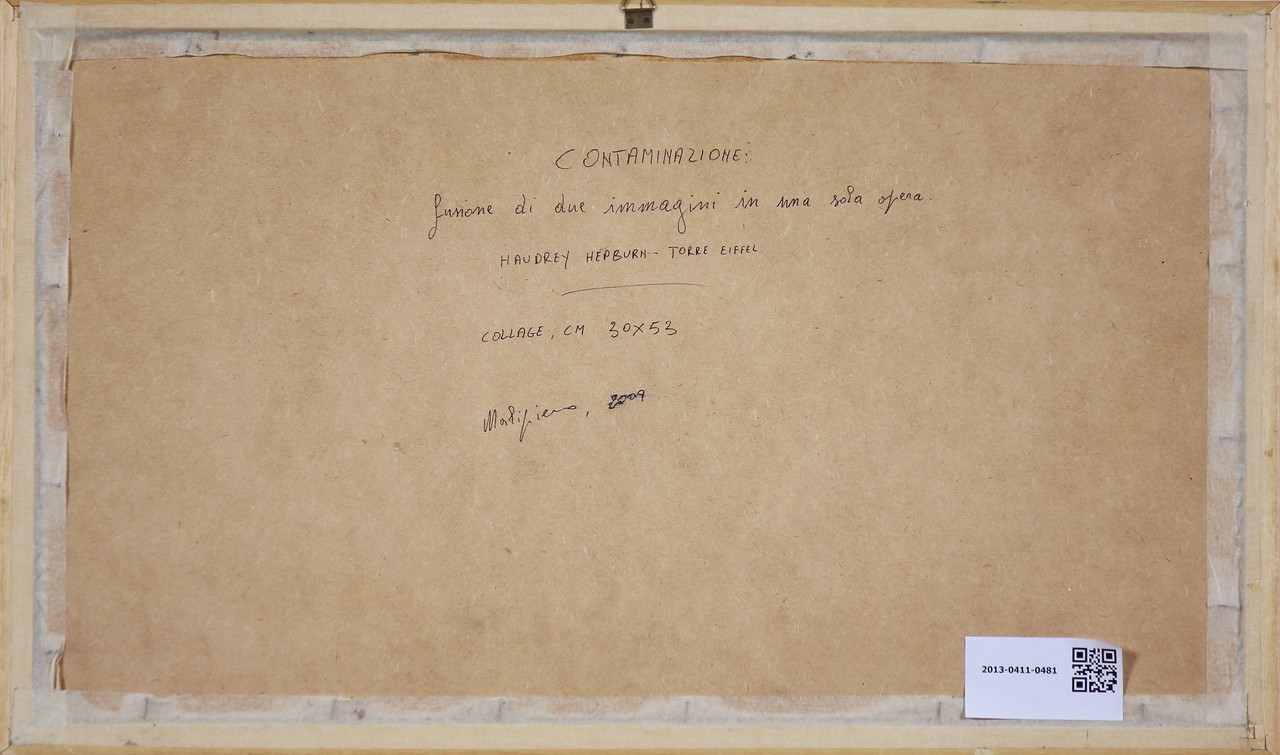 CONTAMINAZIONE:
fusione di due immagini in una sola opera.
HAUDREY HEPBURN - TORRE EIFFEL
COLLAGE, CM 30X53
Malipiero, 2009
2013-0411-0481